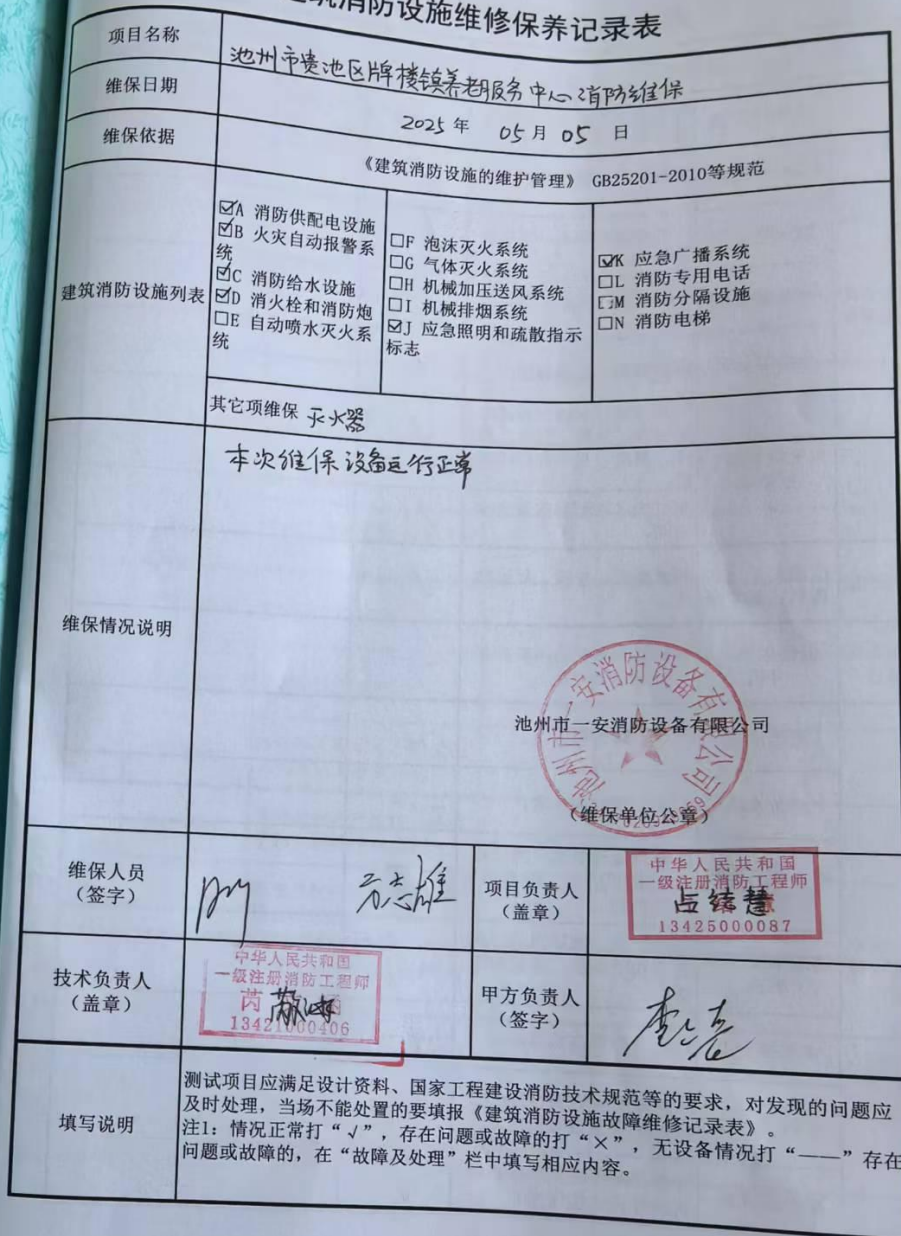 筑消防设施维修保养记录表
项目名称
池州市贵池区牌楼镇养老服务中心消防维保
维保日期
2025年 05月 05日
维保依据
《建筑消防设施的维护管理》 GB25201-2010等规范
建筑消防设施列表
☑A 消防供配电设施
☑B 火灾自动报警系
统
☑C 消防给水设施
☑D 消火栓和消防炮
□E 自动喷水灭火系
统
□F 泡沫灭火系统
□G 气体灭火系统
□H 机械加压送风系统
□I 机械排烟系统
☑J 应急照明和疏散指示
标志
☑K 应急广播系统
□L 消防专用电话
□M 消防分隔设施
□N 消防电梯
其它项维保 灭火器
维保情况说明
本次维保设备运行正常
池州市一安消防设备有限公司
池州市一安消防设备有限公司
(维保单位公章)
维保人员
(签字)
方志雄
项目负责人
(盖章)
中华人民共和国
一级注册消防工程师
占结慧
13425000087
技术负责人
(盖章)
中华人民共和国
一级注册消防工程师
芮
13421000406
甲方负责人
(签字)
填写说明
测试项目应满足设计资料、国家工程建设消防技术规范等的要求，对发现的问题应
及时处理，当场不能处置的要填报《建筑消防设施故障维修记录表》。
注1：情况正常打“√”，存在问题或故障的打“×”，无设备情况打“——”存在
问题或故障的，在“故障及处理”栏中填写相应内容。